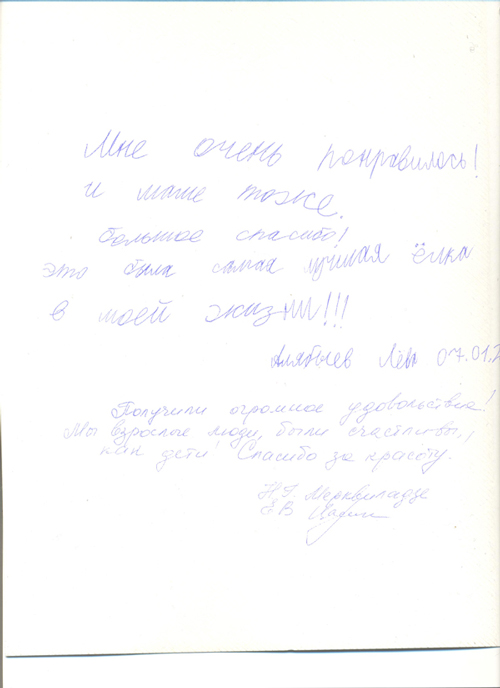 Мне очень понравилось!
и маме тоже.
большое спасибо!
это была самая лучшая ёлка
в моей жизни!!!
Алябьев Лёва 07.01.2
Получили огромное удовольствие!
Мы взрослые люди, были счастливы,
как дети! Спасибо за красоту.
Н.Г. Мерквиладзе
Е В